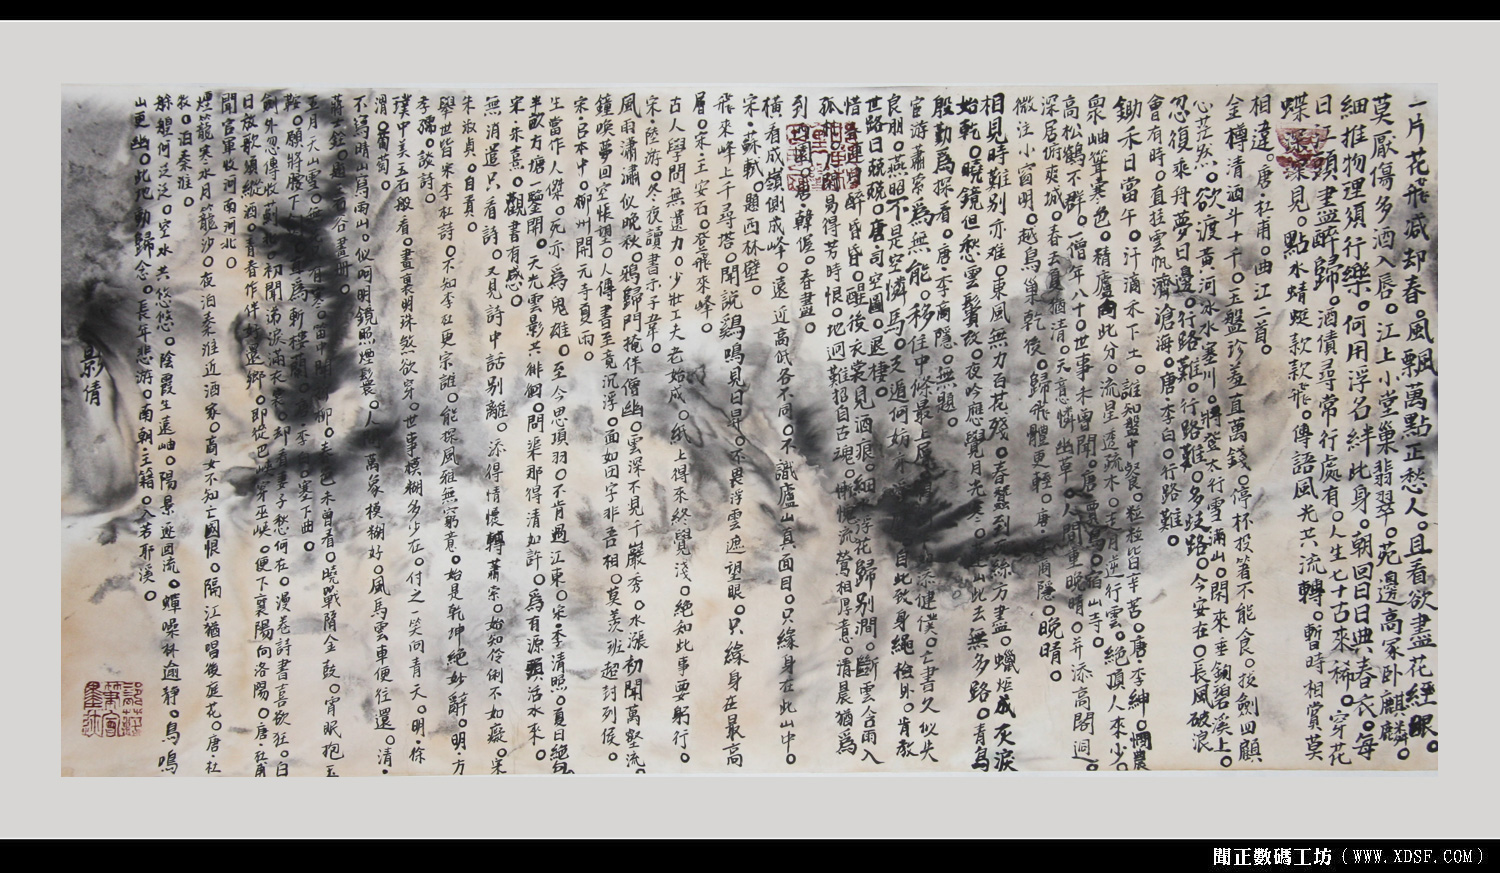 一片花飛減却春。風飄萬點正愁人。且看欲盡花經眼。
莫厭傷多酒入唇。江上小堂巢翡翠。苑邊高冢卧麒麟。
細推物理須行樂。何用浮名絆此身。朝回日日典春衣。每
日江頭盡醉歸。酒債尋常行處有。人生七十古來稀。穿花
蝶深深見。點水蜻蜓款款飛。傳語風光共流轉。暫時相賞莫
相違。唐·杜甫。曲江二首。
金樽清酒斗十千。玉盤珍羞直萬錢。停杯投箸不能食。拔劍四顧
心茫然。欲渡黃河冰塞川。將登太行雪滿山。閑來垂釣碧溪上。
忽復乘舟夢日邊。行路難。行路難。多歧路。今安在。長風破浪
會有時。直挂雲帆濟滄海。唐·李白。行路難。
鋤禾日當午。汗滴禾下土。誰知盤中餐。粒粒皆辛苦。唐·李紳。憫農
衆岫聳寒色。精廬向此分。流星透疏木。走月逆行雲。絕頂人來少。
高松鶴不群。一僧年八十。世事未曾聞。唐·賈島。宿山寺。
深居俯夾城。春去夏猶清。天意憐幽草。人間重晚晴。并添高閣迥。
微注小窗明。越鳥巢乾後。歸飛體更輕。唐·李商隱。晚晴。
相見時難別亦難。東風無力百花殘。春蠶到死絲方盡。蠟炬成灰淚
始乾。曉鏡但愁雲鬢改。夜吟應覺月光寒。蓬山此去無多路。青鳥
殷勤爲探看。唐·李商隱。無題。
宦游蕭索爲無能。移住中條最上層。得劍乍如添健僕。亡書久似失
良朋。燕昭不是空憐馬。支遁何妨亦愛鷹。自此致身繩檢外。肯教
世路日兢兢。唐·司空圖。退棲。
惜春連日醉昏昏。醒後衣裳見酒痕。細水浮花歸別澗。斷雲含雨入
孤村。人閑易得芳時恨。地迥難招自古魂。慚愧流鶯相厚意。清晨猶爲
到西園。唐·韓偓。春盡。
橫看成嶺側成峰。遠近高低各不同。不識廬山真面目。只緣身在此山中。
宋·蘇軾。題西林壁。
飛來峰上千尋塔。聞說鷄鳴見日昇。不畏浮雲遮望眼。只緣身在最高
層。宋·王安石。登飛來峰。
古人學問無遺力。少壯工夫老始成。紙上得來終覺淺。絕知此事要躬行。
宋·陸游。冬夜讀書示子聿。
風雨瀟瀟似晚秋。鴉歸門掩伴僧幽。雲深不見千巖秀。水漲初聞萬壑流。
鐘喚夢回空悵望。人傳書至竟沉浮。面如田字非吾相。莫羨班超封列侯。
宋·呂本中。柳州開元寺夏雨。
生當作人傑。死亦爲鬼雄。至今思項羽。不肯過江東。宋·李清照。夏日絕句
半畝方塘一鑒開。天光雲影共徘徊。問渠那得清如許。爲有源頭活水來。
宋·朱熹。觀書有感。
無消遣只看詩。又見詩中話別離。添得情懷轉蕭索。始知伶俐不如癡。宋
朱淑貞。自責。
舉世皆宗李杜詩。不知李杜更宗誰。能探風雅無窮意。始是乾坤絕妙辭。明·方
孝孺。談詩。
璞中美玉石般看。畫裏明珠煞欲穿。世事模糊多少在。付之一笑問青天。明·徐
渭。葡萄。
不寫晴山寫雨山。似呵明鏡照煙鬟。人間萬象模糊好。風馬雲車便往還。清·
蔣士銓。題王石谷畫冊。
五月天山雪。無花只有寒。笛中聞折柳。春色未曾看。曉戰隨金鼓。宵眠抱玉
鞍。願將腰下劍。直爲斬樓蘭。唐·李白。塞下曲。
劍外忽傳收薊北。初聞涕淚滿衣裳。却看妻子愁何在。漫卷詩書喜欲狂。白
日放歌須縱酒。青春作伴好還鄉。即從巴峽穿巫峽。便下襄陽向洛陽。唐·杜甫
聞官軍收河南河北。
煙籠寒水月籠沙。夜泊秦淮近酒家。商女不知亡國恨。隔江猶唱後庭花。唐·杜
牧。泊秦淮。
艅艎何泛泛。空水共悠悠。陰霞生遠岫。陽景逐回流。蟬噪林逾靜。鳥鳴
山更幽。此地動歸念。長年悲游。南朝·王籍。入若耶溪。
影倩
聞正數碼工坊（WWW.XDSF.COM）